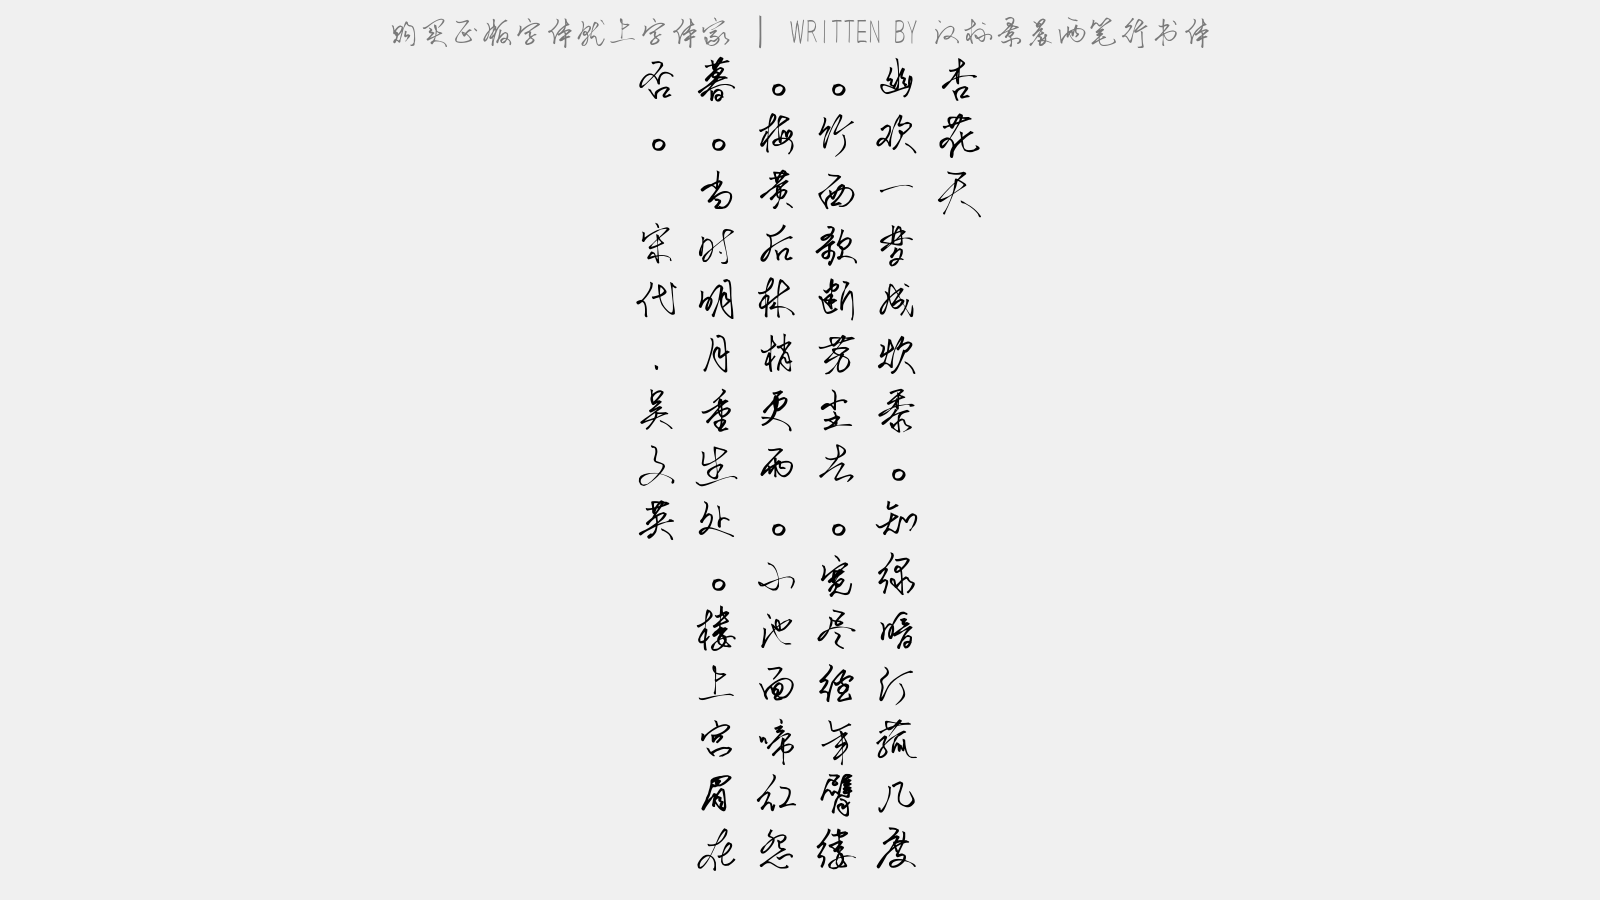 购买正版字体就上字体家 | WRITTEN BY 汉标笔行书体
杏花天
幽欢一梦成炊黍。知绿暗汀菰几度
。竹西歌断芳尘去。宽尽经年臂缕
。梅黄后林梢更雨。小池面啼红怨
暮。当时明月重生处。楼上宫眉在
否。 宋代.吴文英